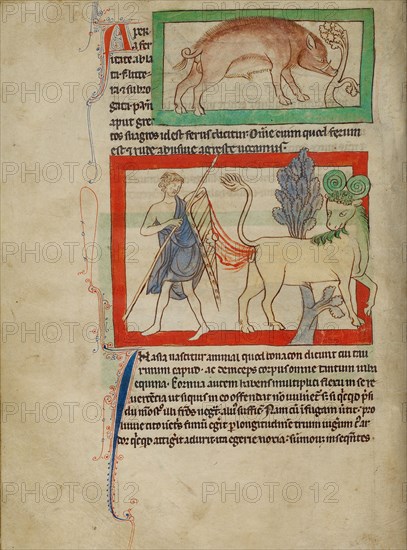 APER
a fer
itate abla
ta f litte
ra & subro
aput gre
cos suagros id est ferus dicitur. Omne enim quod ferum
est & rude abusiue agreste uocamus.
In asia nascitur animal quod bonacon dicunt cui tau
rinum capud. ac deinceps corpus omne tantum iuba
equina. Cornua autem habens multiplici flexu in se re
currentia ut siquis in eo offendat non uulneret. s; qicqd psi
frons negat. aluus sufficit. Nam cum in fugam uertit. pro
fluuio citi uentris fimum egerit per longitudinem trium iugerum cuius ar
dor qicqd attigerit adurit. ita egerie noxia summouet insequentes.
PHOTO 12